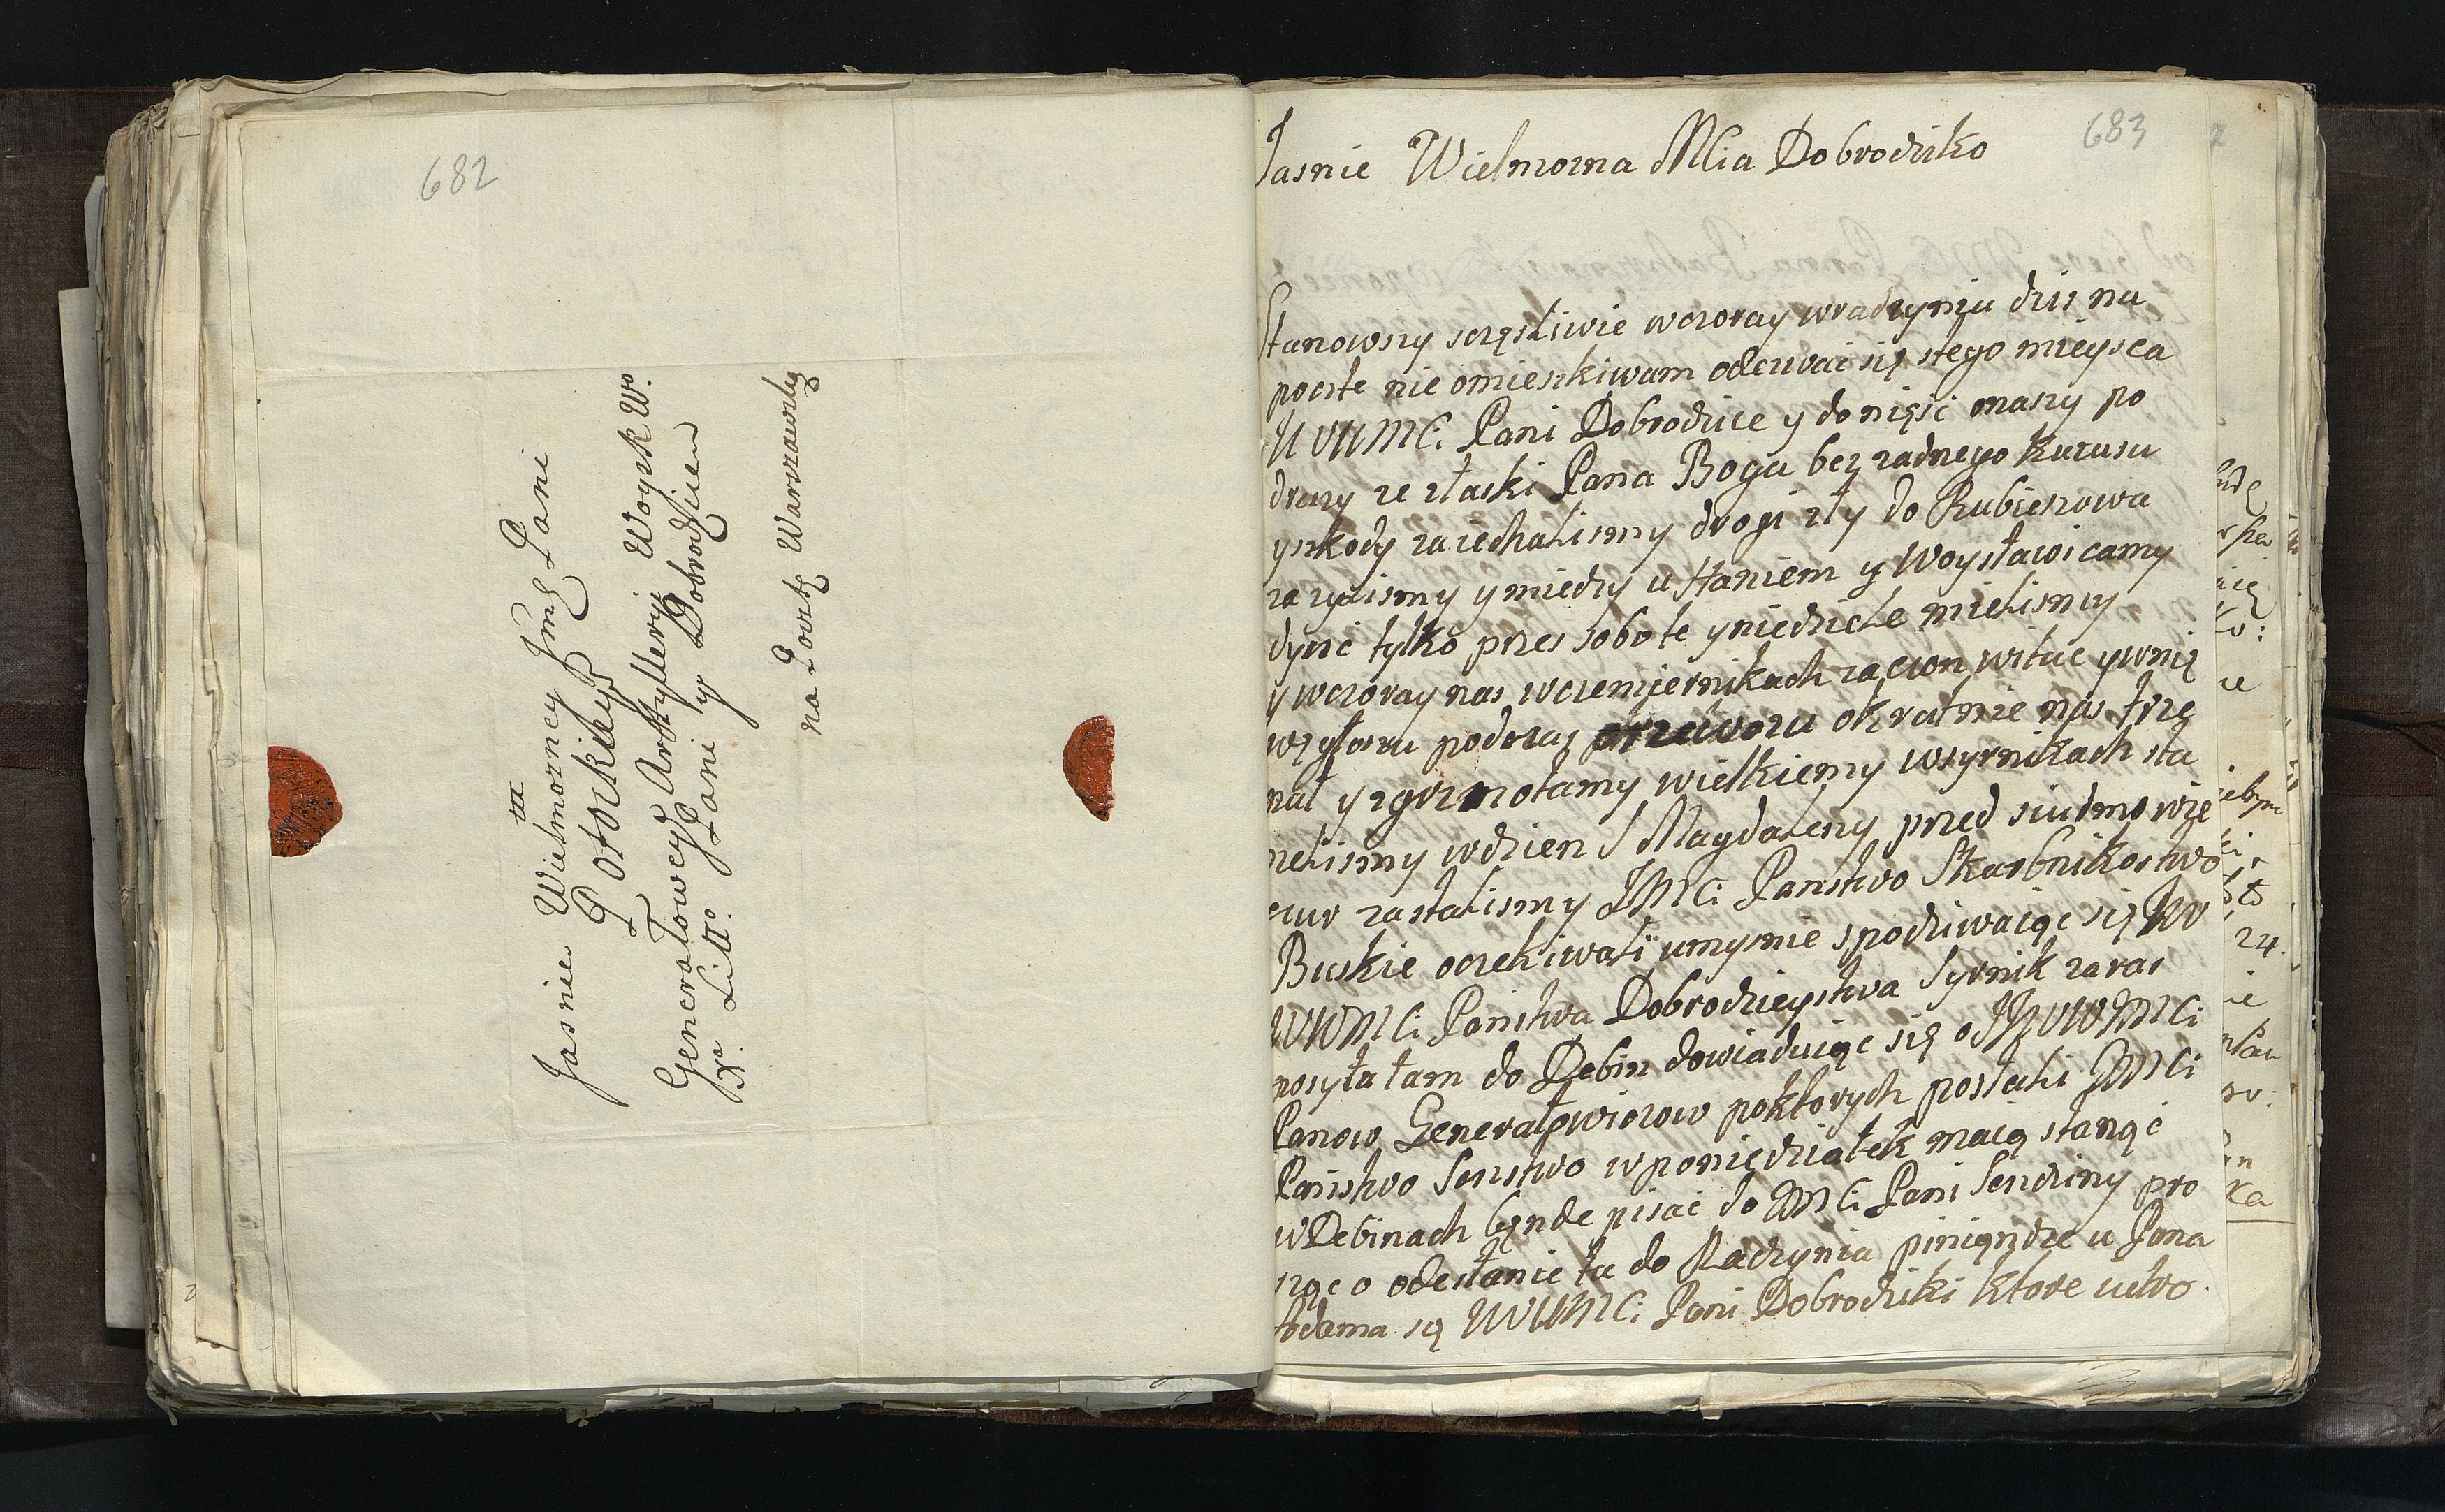 682
Jasnie Wielmozney Jmę Pani
Potockiey
Generałowey Arttylleryi Woysk Wo.
Xa. Litto. Pani y Dobrodzien
na Pocztę Warszawską
683
Jasnie Wielmozna Mcia Dobrodziko
Stanowszy sczęsliwie wczoray wradzyniu dzis na
poczte nie omieszkiwam odezwac się stego mieysca
WMCi Pani Dobrodzice y donięsc onaszy po
drozy ze złaski Pana Boga bez zadnego kazusu
yszkody zaiechalismy drogi zły do Rubieszowa
zazylismy ymiedzy uHaniem y Woysławicamy
dyzc tylko przes sobote yniedziele mielismy
ywczoray nas wczemiernikach zacion witac ywnię
wzgłosku podczas okratnie nas trzę
nał yzgrzmotamy wielkiemy wsyrnikach sta
nelismy wdzien S Magdaleny przed siudmo wie
czur zastalismy JMCi Panstwo Skarbnikostwo
Buskie oczekiwali umysnie spodziwaiąc się JW
WWMCi Panstwa Dobrodzieystwa Syrnik zaras
posyła łam do Debin dowiaduiąc się o JWWMCi
Panow Generałowiczow poktorych posłali JMCi
Panstwo Senstwo wponiedziałek maią stanąc
wDebinach będe pisac do JMCi Pani Sendziny pro
sząc o odesłanie tu do Radzynia piniądze u Pana
Adama są WWMCi Pani Dobrodziki ktore uwo
24.